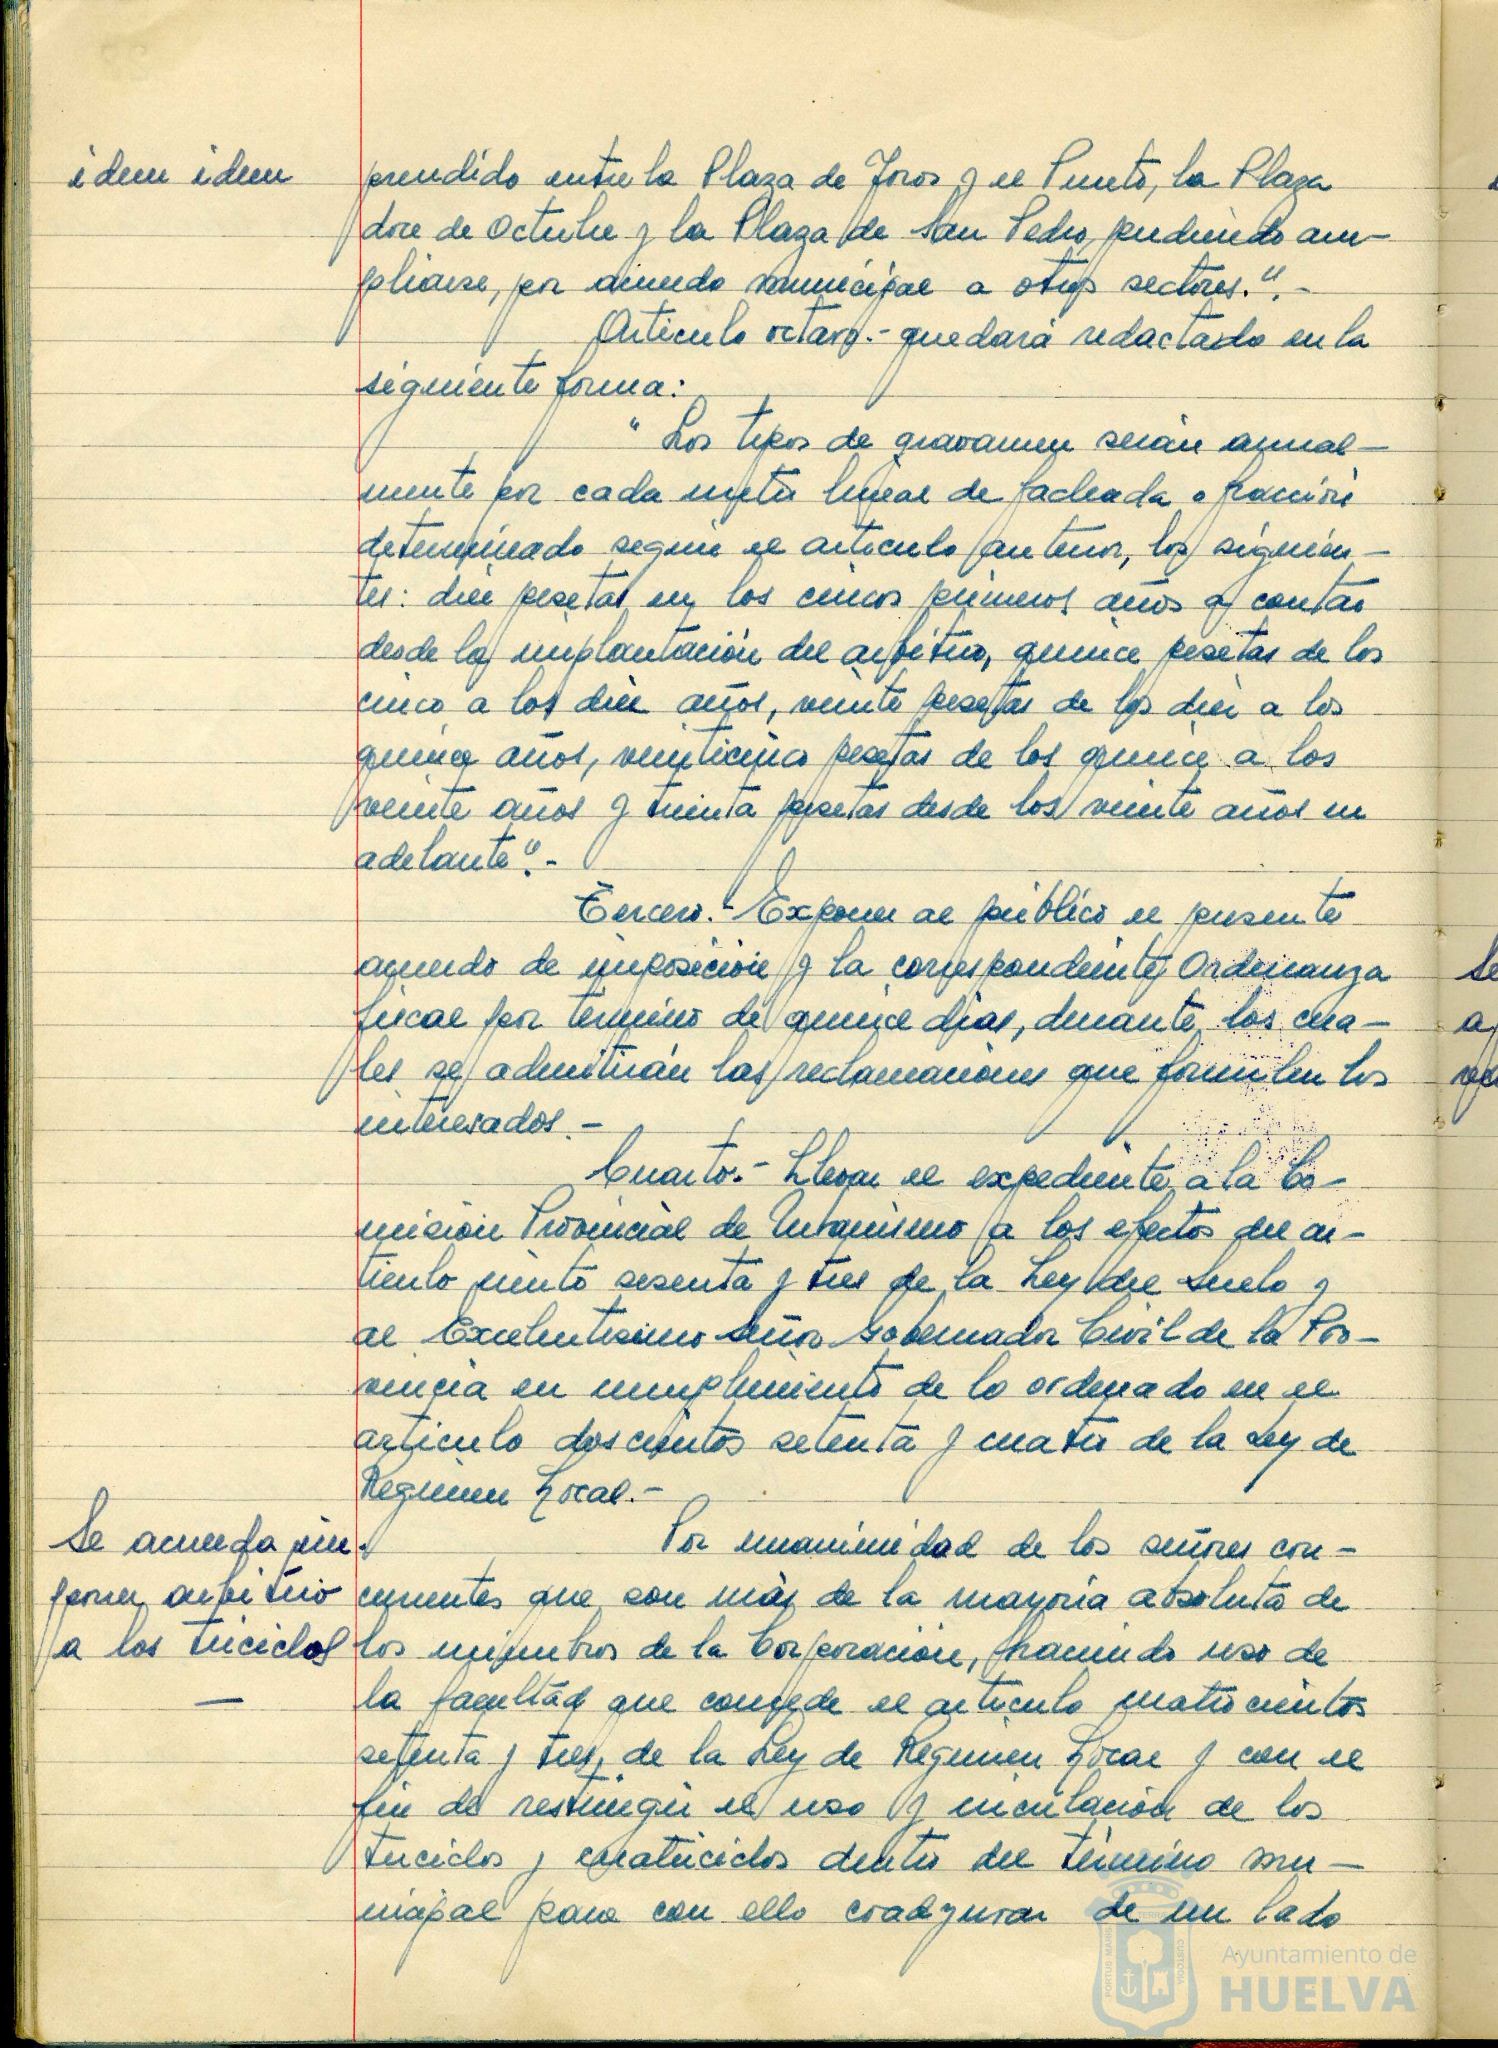 idem idem
prendido entre la Plaza de Toros y el Punto, la Plaza
doce de Octubre y la Plaza de San Pedro, pudiendo am-
pliarse, por acuerdo municipal a otros sectores.".-
Articulo octavo.- quedará redactado en la
siguiente forma:
"Los tipos de gravamen serán anual-
mente por cada metro lineal de fachada o fracción
determinado según el articulo anterior, los siguien-
tes: diez pesetas en los cincos primeros años a contar
desde la implantación del arbitrio, quince pesetas de los
cinco a los diez años, veinte pesetas de los diez a los
quince años, veinticinco pesetas de los quince a los
veinte años y treinta pesetas desde los veinte años en
adelante".-
Tercero.- Exponer al público el presente
acuerdo de imposición y la correspondiente Ordenanza
fiscal por término de quince dias, durante los cua-
les se admitirán las reclamaciones que formulen los
interesados.-
Cuarto.- Llevar el expediente a la Co-
misión Provincial de Urbanismo a los efectos del ar-
ticulo ciento sesenta y tres de la Ley del Suelo y
al Excelentisimo Señor Gobernador Civil de la Pro-
vincia en cumplimiento de lo ordenado en el
articulo doscientos setenta y cuatro de la Ley de
Regimen Local.-
Se acuerda im
poner arbitrio
a los triciclos
Por unanimidad de los señores con-
currentes que son más de la mayoria absoluta de
los miembros de la Corporación, haciendo uso de
la facultad que concede el articulo cuatrocientos
setenta y tres, de la Ley de Regimen Local y con el
fin de restringir el uso y circulación de los
triciclos y cuatriciclos dentro del término mu-
nicipal para con ello coadyuvar de un lado
Ayuntamiento de
HUELVA